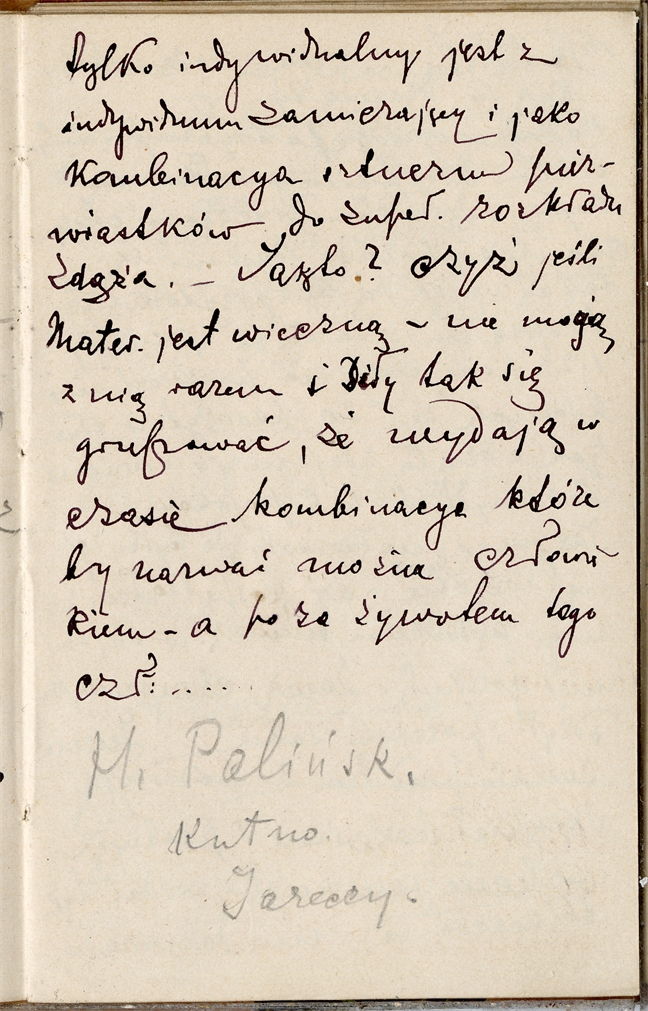 tylko indywidualny jest z
indywiduum zamierający i jako
Kombinacya pier-
wiastków do zupeł. rozkładu
zdąża. – Jakto? czyż jeśli
Mater. jest wieczną – nie mogą
z nią razem i Siły tak się
grupować, że wydają w
czasie kombinacye które
by nazwać można człowie
kiem – a po za żywotem tego
czł: .....
H. Palińsk.
Kutno.
Jareccy.